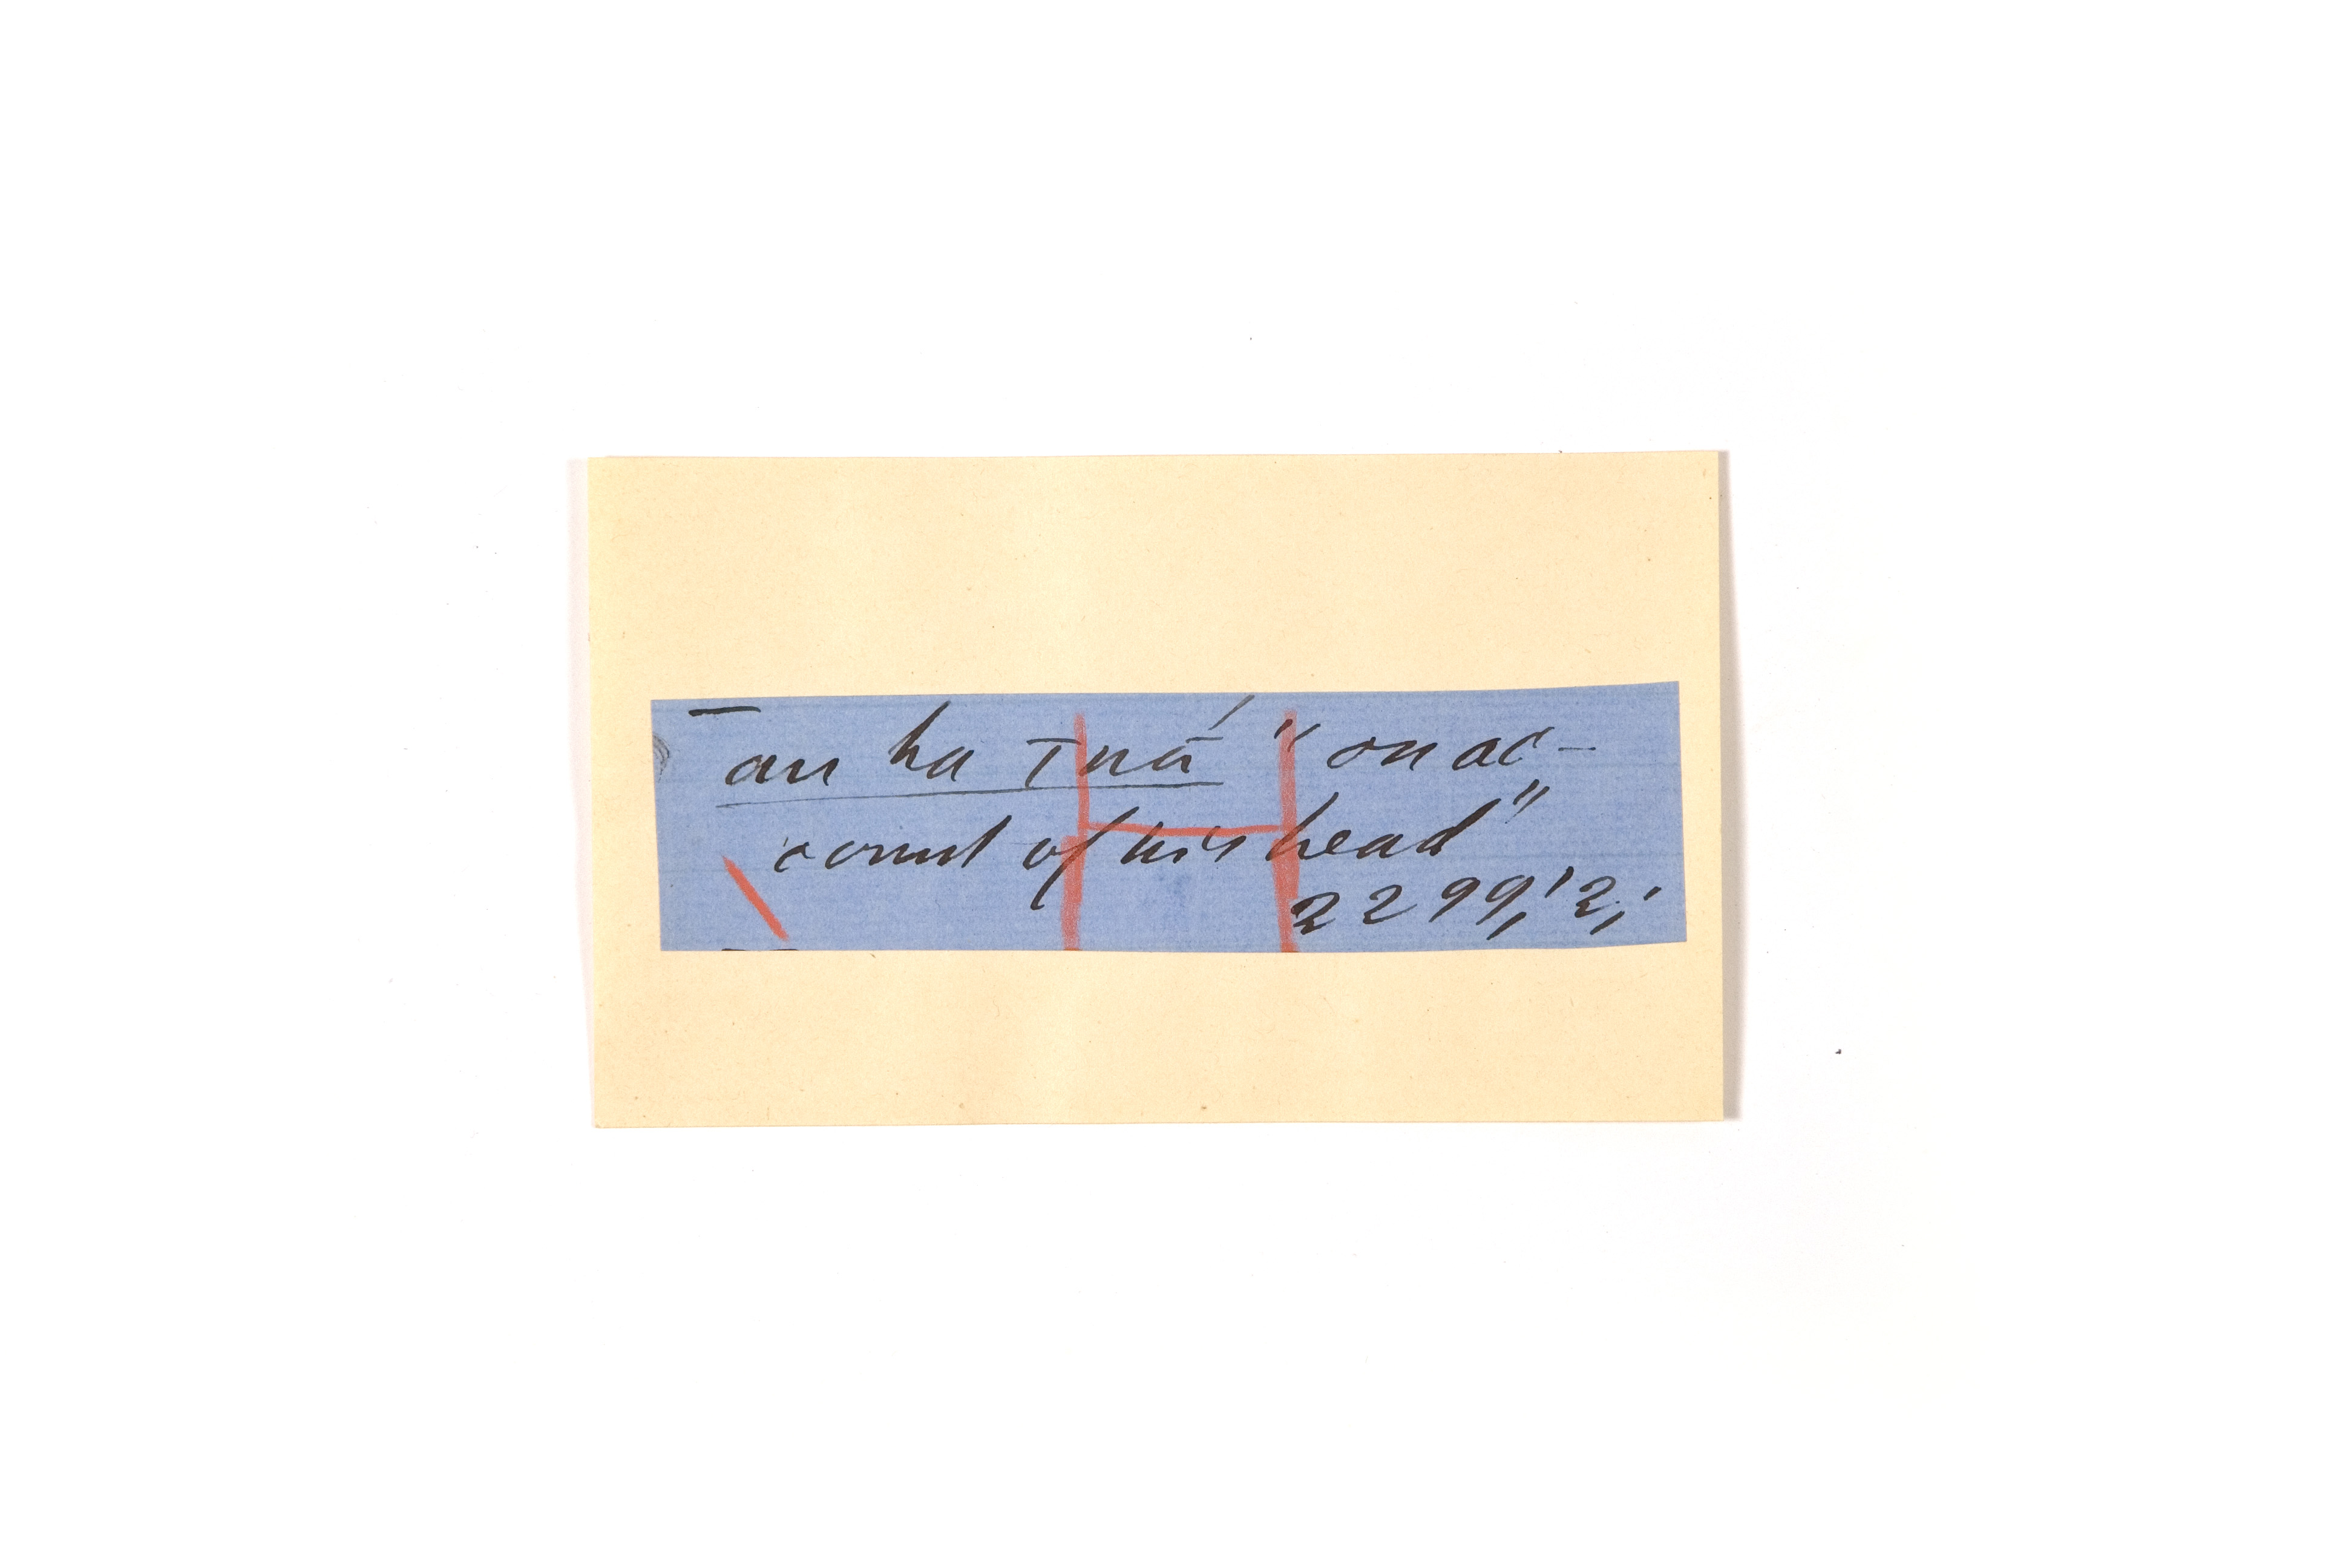 an ha ɪnā́ "on ac-
count of his head"
2299,'2,'